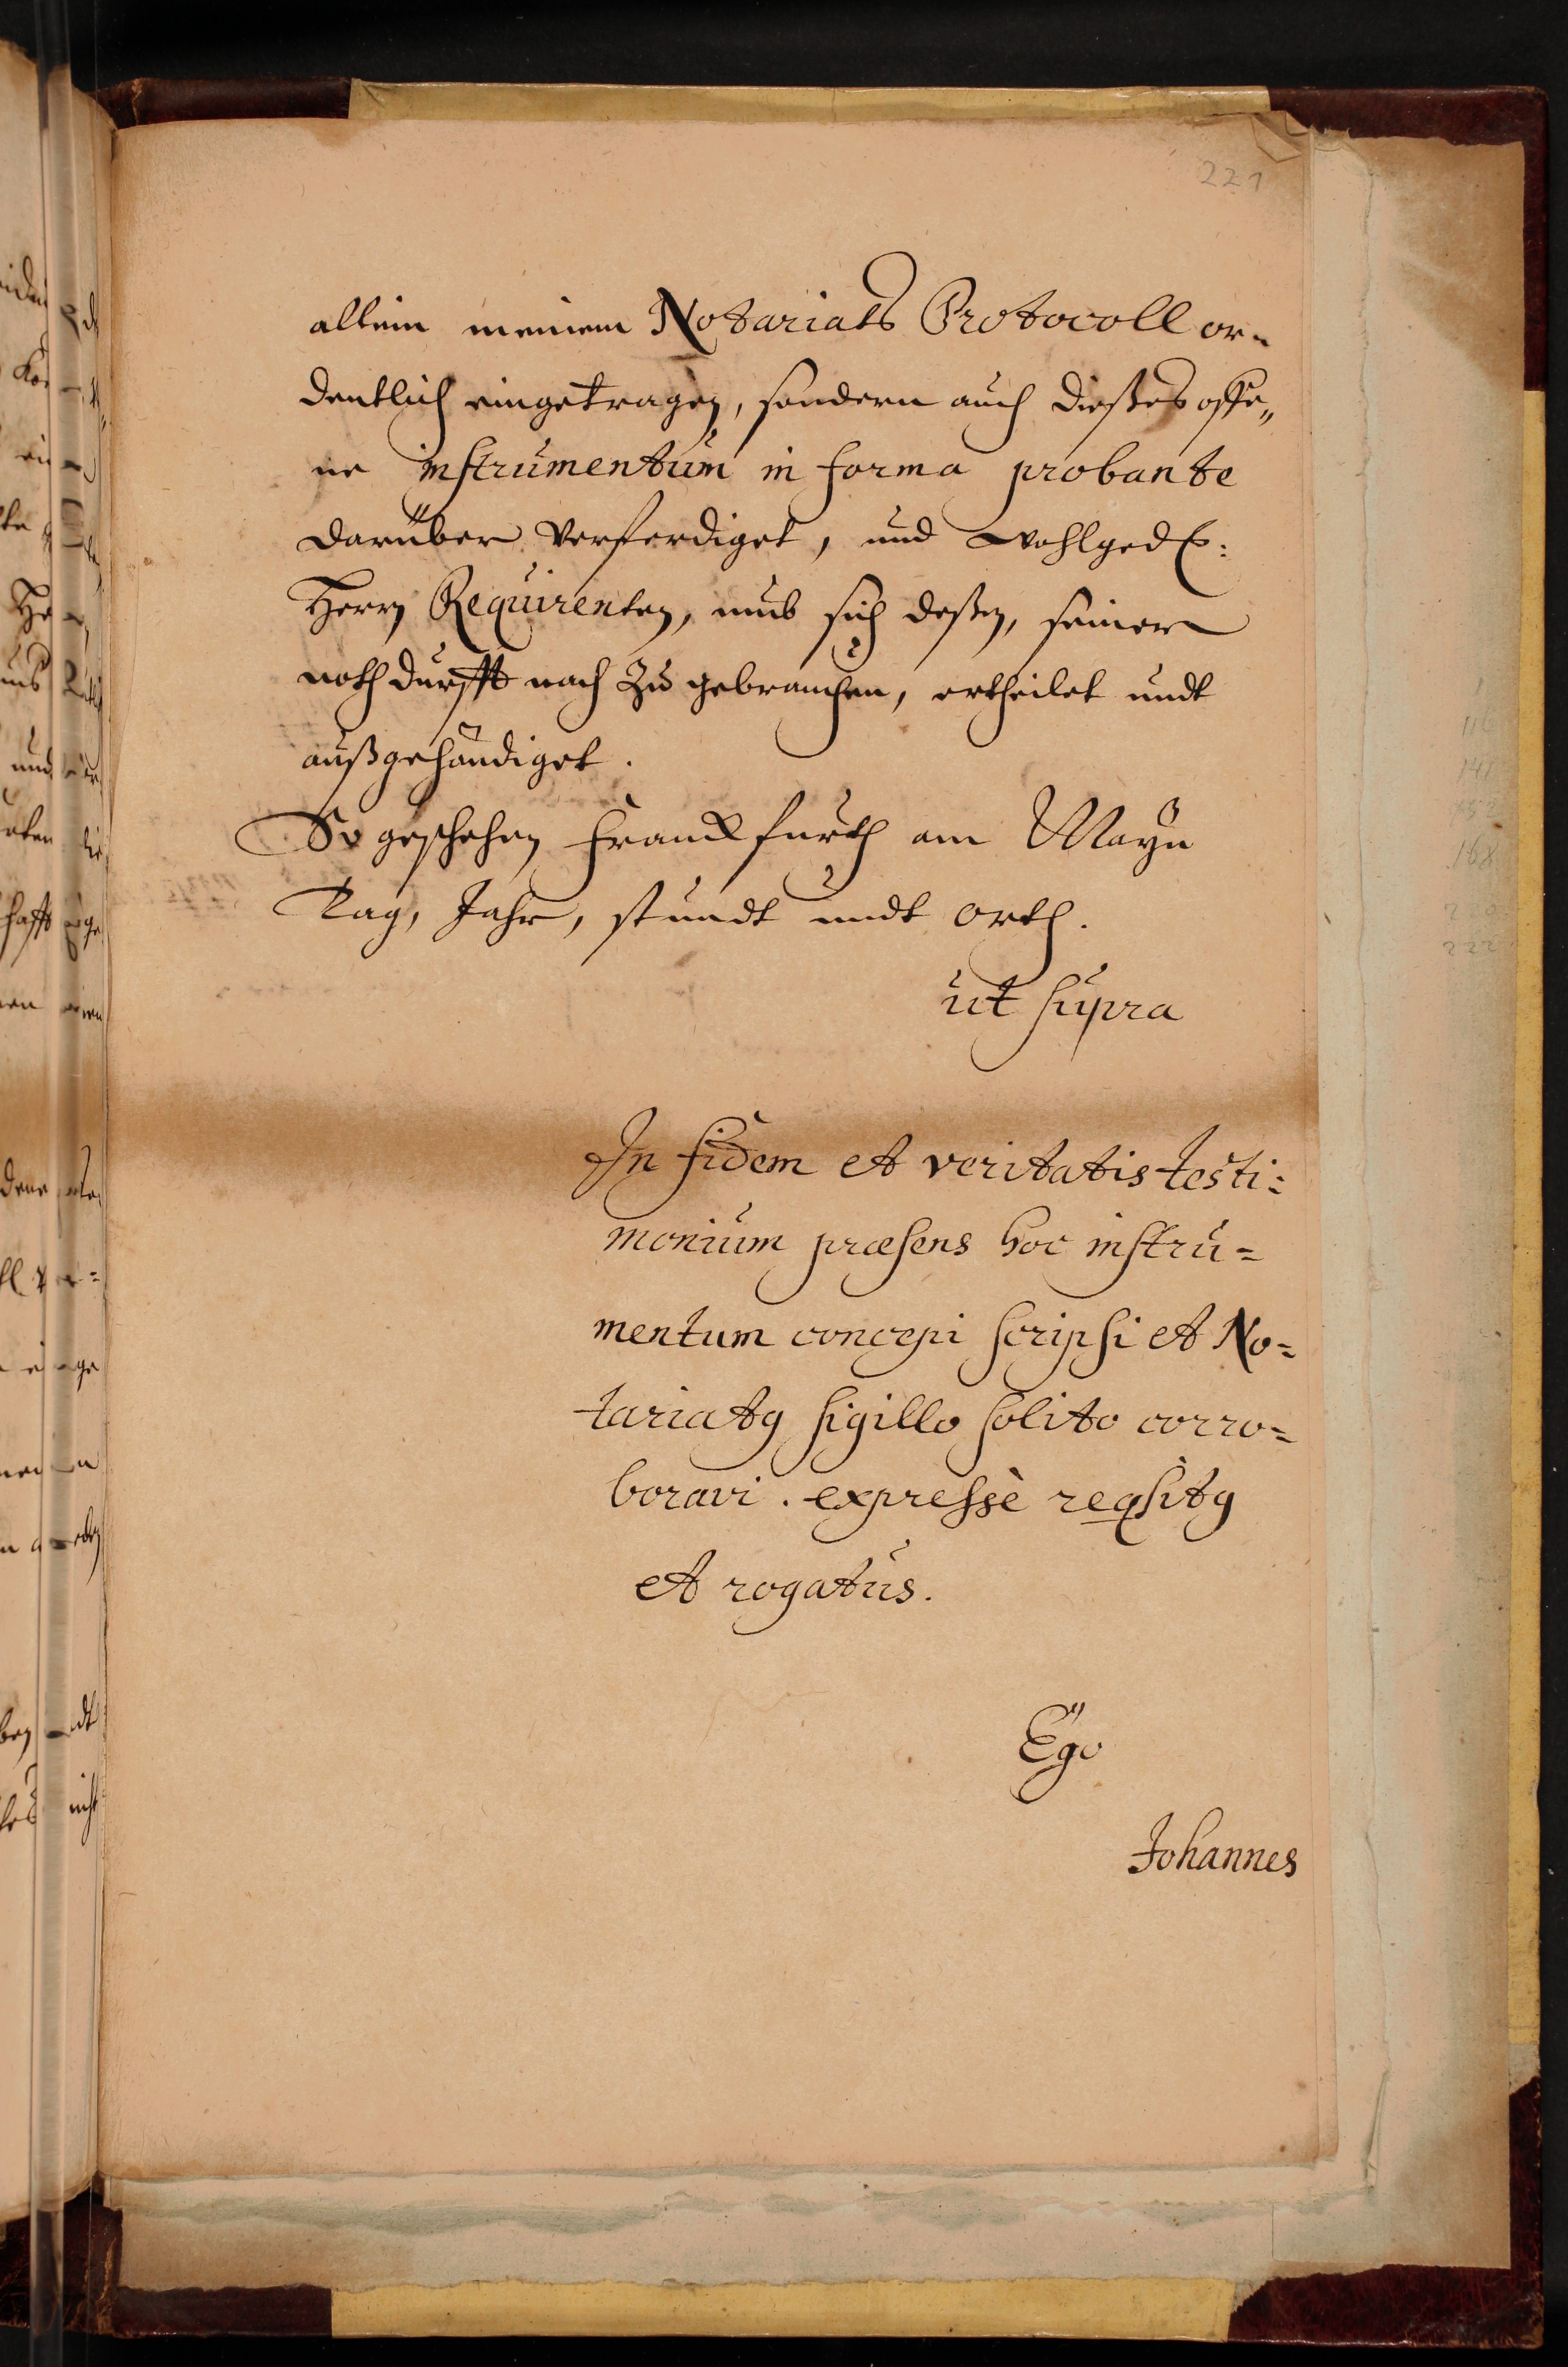 221
allein meinem Notariats Protocoll or-
dentlich eingetragen, sondern auch dießes offe„
ne instrumentum in forma probante
darüber verferdiget, und wohlged:
Herrn Requirenten, umb sich deßen, seiner
nothdurfft nach zu gebrauchen, ertheilet undt
außgehändiget.
So geschehen Franckfurth am Mayn
Tag, Jahr, stundt undt orth.
ut supra
In fidem et veritatis testi:
monium præsens hoc instru=
mentum concepi scripsi et No=
tariatq sigillo solito corro=
boravi. expressè reqsitq
et rogatus.
Ego
Johannes
116
141
168
222